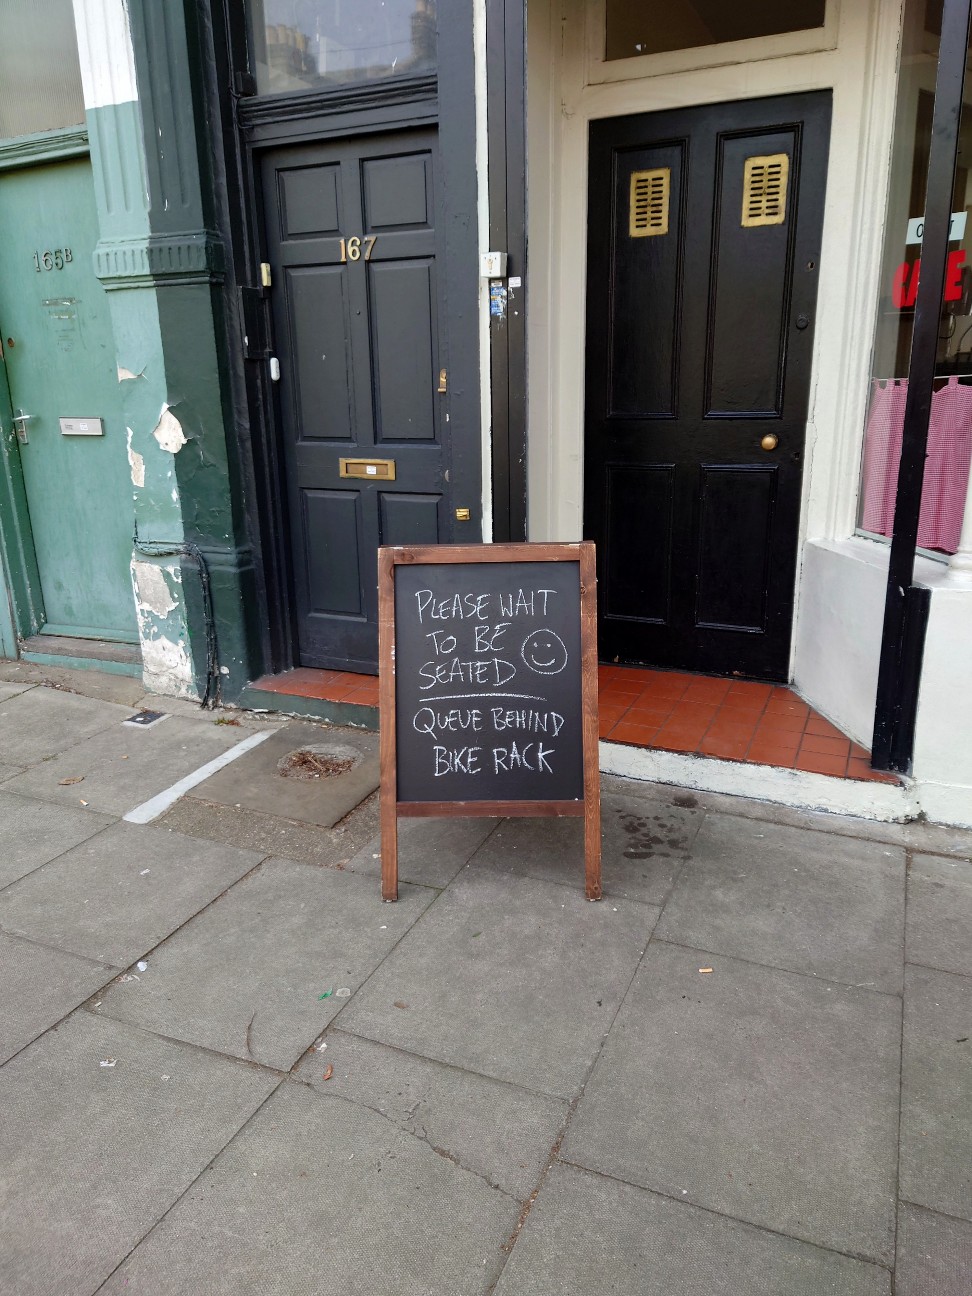 165B
167
CAFE
PLEASE WAIT
TO BE
SEATED
QUEUE BEHIND
BIKE RACK